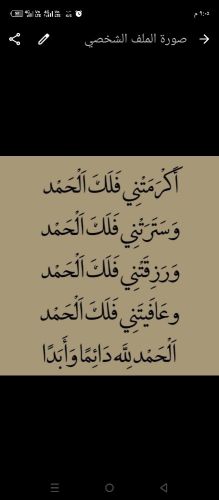 ٩:٠٥ م
صورة الملف الشخصي
أَكْرَمَتْنِي فَلَكَ اَلْحَمْد
وَسَتَرَتْنِي فَلَكَ اَلْحَمْد
وَرَزِقَتْنِي فَلَكَ اَلْحَمْد
وعَافَيتَنِي فَلَكَ اَلْحَمْد
اَلْحَمْد لِلَّه دَائِمًا وَأَبَدًا